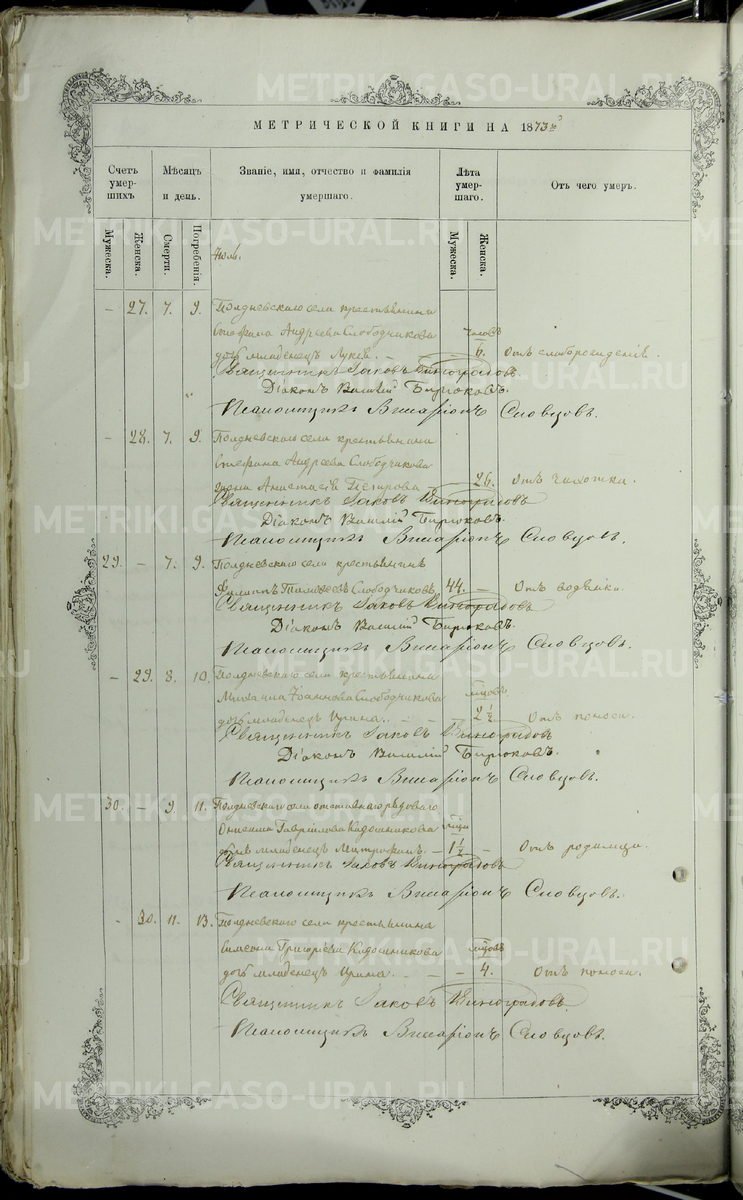 МЕТРИЧЕСКОЙ КНИГИ НА 1873й
Счетъ умершихъ
Мѣсяцъ и день.
Званіе, имя, отчество и фамилія умершаго.
Лѣта умершаго.
Отъ чего умеръ.
Мужеска. Женска. Смерти. Погребенія. Мужеска. Женска.
Іюль.
– 27. 7. 9. Полдневскаго села крестьянина
Стефана Андреева Слободчикова часовъ
дочь младенецъ – – 6. Отъ слаборожденія.
Священникъ Іаковъ Виноградовъ
Діаконъ Василій Бирюковъ.
Псаломщикъ Виссаріонъ Словцовъ.
– 28. 7. 9. Полдневскаго села крестьянина
Стефана Андреева Слободчикова
жена Анастасія Петрова 26. Отъ чахотки.
Священникъ Іаковъ Виноградовъ
Діаконъ Василій Бирюковъ.
Псаломщикъ Виссаріонъ Словцовъ.
29. – 7. 9. Полдневскаго села крестьянинъ
Филиппъ Тимофеевъ Слободчиковъ 44. – Отъ водянки.
Священникъ Іаковъ Виноградовъ
Діаконъ Василій Бирюковъ.
Псаломщикъ Виссаріонъ Словцовъ.
– 29. 8. 10. Полдневскаго села крестьянина
Михаила Іоаннова Слободчикова мцовъ.
дочь младенецъ Ирина. – – 2 ½ Отъ поноса.
Священникъ Іаковъ Виноградовъ
Діаконъ Василій Бирюковъ.
Псаломщикъ Виссаріонъ Словцовъ.
30. – 9. 11. Полдневскаго села отставнаго рядоваго
Онисима Гавриілова Кадошникова мца
сынъ младенецъ Митрофанъ. – 1 ½ – Отъ родимца.
Священникъ Іаковъ Виноградовъ
Псаломщикъ Виссаріонъ Словцовъ.
– 30. 11. 13. Полдневскаго села крестьянина
Симеона Григоріева Кадошникова мцовъ
дочь младенецъ Ирина. – – 4. Отъ поноса.
Священникъ Іаковъ Виноградовъ.
Псаломщикъ Виссаріонъ Словцовъ.
METRIKI.GASO-URAL.RU